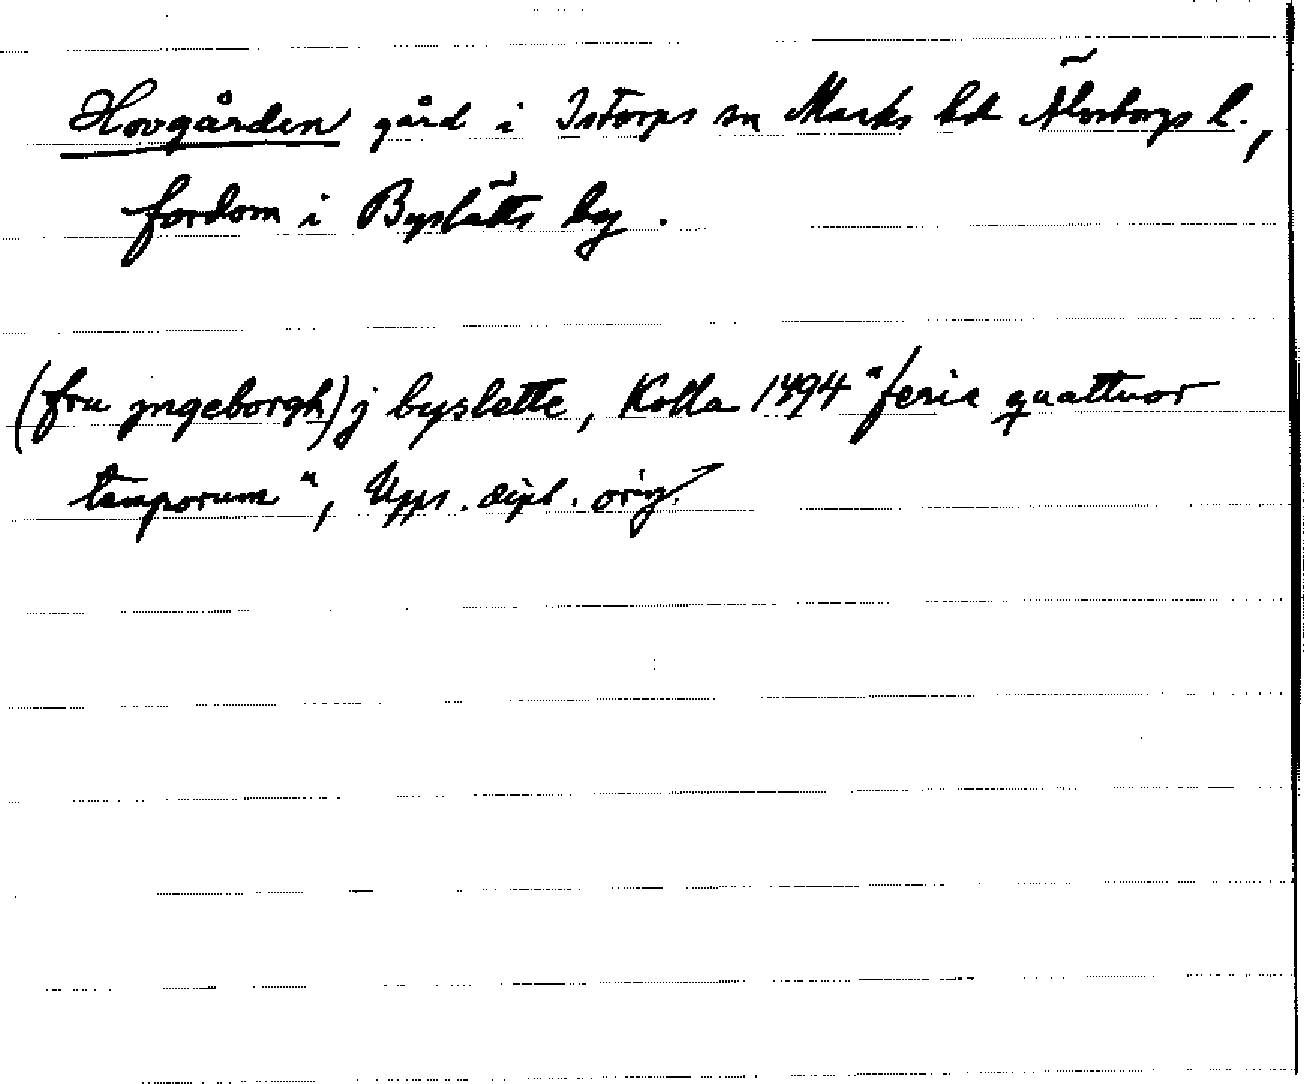 Hovgården gård i Istorps sn Marks hd Älvsborgs l.,
fordom i Byslätts by.
(fru jngeborgh) j byslette, Kolla 1494 "feria quattuor
temporum", Upps. dipl. orig.